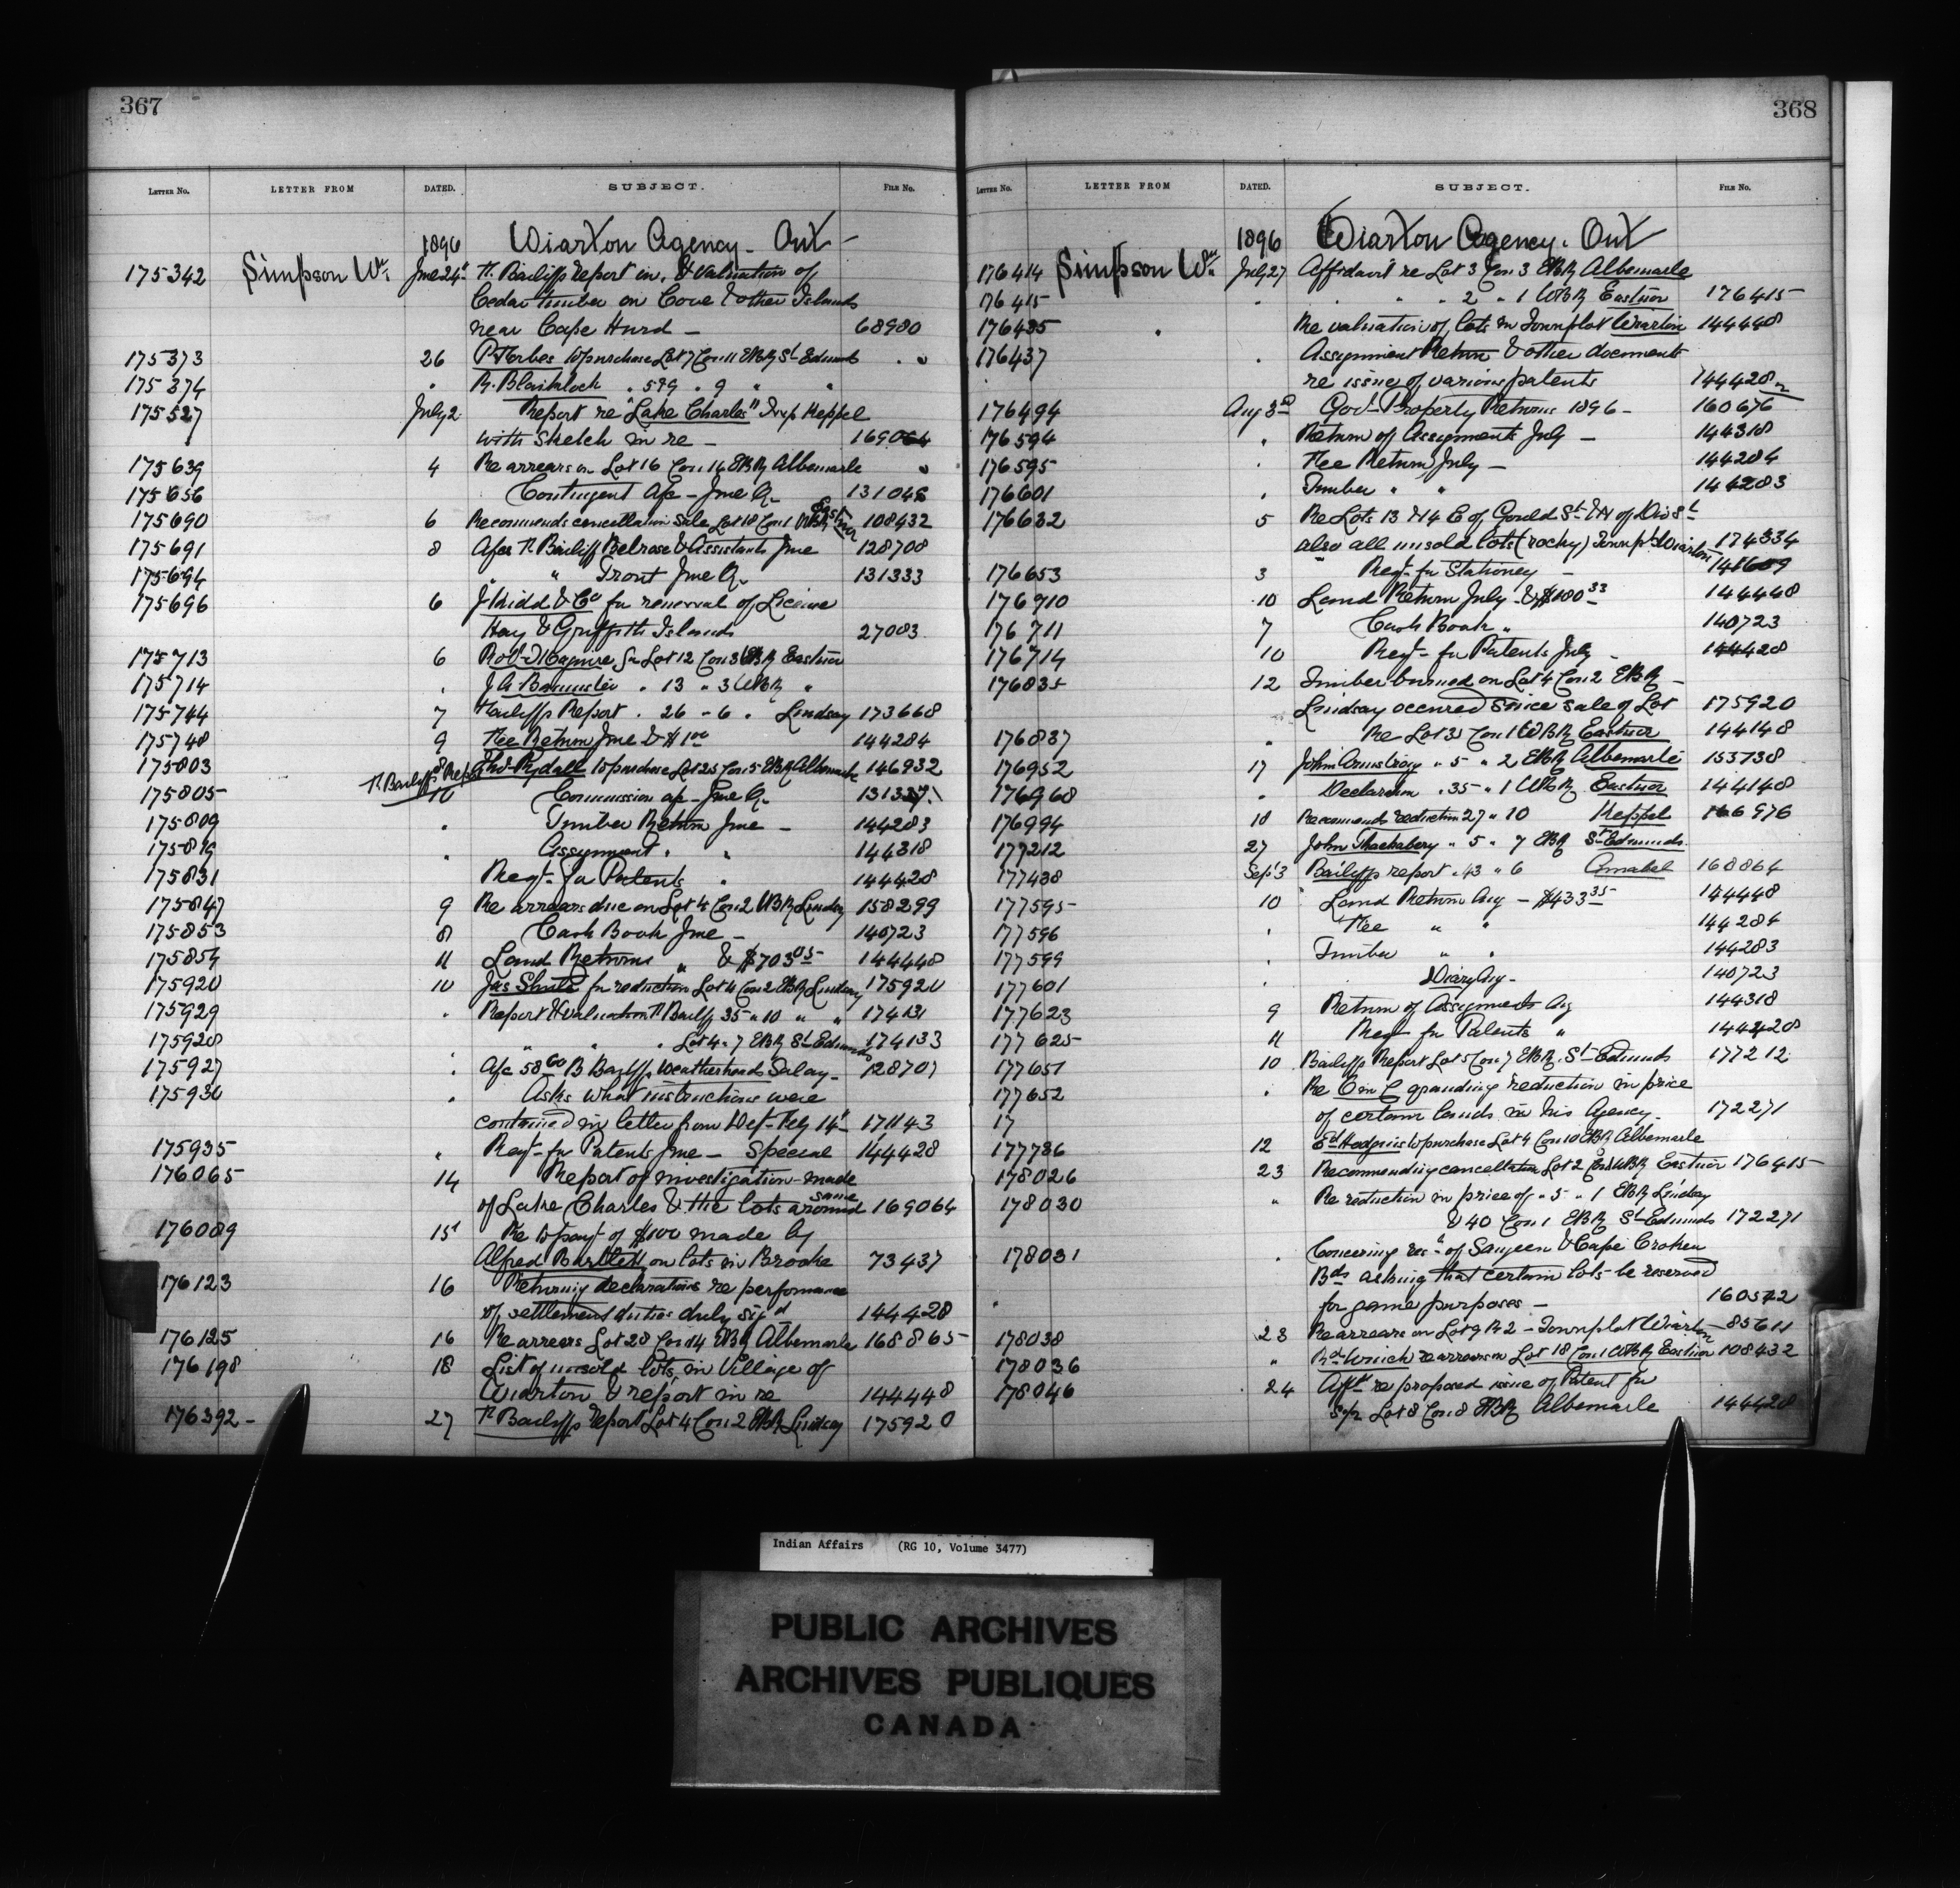 367
LETTER No. LETTER FROM DATED. SUBJECT. FILE No.
1896 Wiarton Agency - Ont -
175342 Simpson Wm June 24th Bailiffs report in, & valuation of
Cedar timber on Cove & other Islands
near Cape Hurd - 68980
175373 26 P. Forbes to purchase Lot 7 Con 11 EBR St Edmund " "
175374 " R. Blaiklock " 5 & 9 " 9 " "
175527 July 2 Report re "Lake Charles" Twp Keppel
with sketch in re - 169064
175639 4 Re arrears on Lot 16 Con 16 EBR Albemarle "
175656 Contingent a/c - June Qr 131048
175690 6 Recommends cancellation sale Lot 18 Con 1 WBR Eastnor 108432
175691 8 A/cs Bailiff Belrose & Assistants June 128708
175694 " " Trout June Qr 131333
175696 6 J Kidd & Co for renewal of License
Hay & Griffith Islands 27083
175713 6 Robt Maguire for Lot 12 Con 3 EBR Eastnor
175714 " J A Bannister " 13 " 3 WBR "
175744 7 Bailiffs Report " 26 - 6 " Lindsay 173668
175748 9 Fee Return June & $1.00 144284
175803 Bailiffs Report 8 Thos Rydall to purchase Lot 25 Con 5 EBR Albemarle 146932
175805 10 Commission a/c - June Qr 131337
175809 " Timber Return June - 144283
175819 " Assignment " " 144318
175831 Reqt for Patents " 144428
175847 9 Re arrears due on Lot 4 Con 2 WBR Lindsay 158299
175853 8 Cash Book June - 140723
175854 11 Land Returns " & $703.05 144448
175920 10 Jas Shute for reduction Lot 4 Con 2 EBR Lindsay 175920
175929 " Report & valuation Bailiff 35 " 10 " " 174131
175928 " " " Lot 4 " 7 EBR St Edmunds 174133
175927 " A/c 58.60 B Bayliff Weatherheads Salary - 128707
175930 " Asks what instructions were
contained in letter from Dept - Feby 14th - 171143
175935 " Reqt for Patents June - Special 144428
176065 14 Report of investigation made
of Lake Charles & the lots around same 169064
176089 15th Re to payt of $100 made by
Alfred Bartlett on lots in Brooke 73437
176123 16 Returning declarations re performance
of settlement duties duly sigd 144428
176125 16 Re arrears Lot 28 Con 14 EBR Albemarle 168865
176198 18 List of unsold lots, in Village of
Wiarton & report in re 144448
176392 - 27 Bailiffs report Lot 4 Con 2 EBR Lindsay 175920
368
LETTER No. LETTER FROM DATED. SUBJECT. FILE No.
1896 Wiarton Agency. Ont
176414 Simpson Wm July 27 Affidavit re Lot 3 Con 3 EBR Albemarle
176415 " " " 2 " 1 WBR Eastnor 176415
176435 " Re valuation of lots in Townplot Wiarton 144448
176437 " Assignment Return & other documents
re issue of various patents 144428
176494 Aug 3rd Govt Property Returns 1896 - 160676
176594 " Return of Assignments July - 144318
176595 " Fee Return July - 144284
176601 " Timber " " 144283
176632 5 Re Lots 13 & 14 E of Gould St & N of Div St
also all unsold lots (rocky) Townpt Wiarton 174334
176653 3 Reqt for Stationery -
176710 10 Land Return July - & $180.33 144448
176711 7 Cash Book " 140723
176714 10 Reqt - for Patents July - 144428
176835 12 Timber burned on Lot 4 Con 2 EBR -
Lindsay occurred since sale of Lot 175920
176837 " Re Lot 35 Con 1 WBR Eastnor 144148
176952 17 John Armstrong " 5 " 2 EBR Albemarle 153738
176968 " Declaration " 35 " 1 WBR Eastnor 144148
176994 18 Recomends reduction 27 " 10 Keppel 166976
177212 27 John Thackabery " 5 " 7 EBR St Edmunds
177438 Sept 3 Bailiffs report " 43 " 6 Amabel 168864
177595 10 Land Return Aug - $433.35 144448
177596 " Fee " " 144284
177599 " Timber " " 144283
177601 " Diary Aug - 140723
177623 9 Return of Assignments Aug 144318
177625 11 Reqt for Patents " 144428
177651 10 Bailiffs Report Lot 5 Con 7 EBR St Edmunds 177212
177652 " Re O in C granting reduction in price
17 of certain lands in his Agency - 172271
177786 12 Ed Hodgins to purchase Lot 4 Con 10 EBR Albemarle
178026 23 Recommending cancellation Lot 2 Con 1 WBR Eastnor 176415
178030 " Re reduction in price of " 5 " 1 EBR Lindsay
& 40 Con 1 EBR St Edmunds 172271
178031 " Concerning resn of Saugeen & Cape Croker
Bds asking that certain lots be reserved
" for game purposes - 160572
178038 23 Re arrears on Lot 9 R 2 - Townplot Wiarton 85611
178036 " Rd Winch re arrears on Lot 18 Con 1 WBR Eastnor 108432
178046 24 Afft re proposed issue of Patent for
S pt Lot 8 Con 8 EBR Albemarle 144428
Indian Affairs (RG 10, Volume 3477)
PUBLIC ARCHIVES
ARCHIVES PUBLIQUES
CANADA